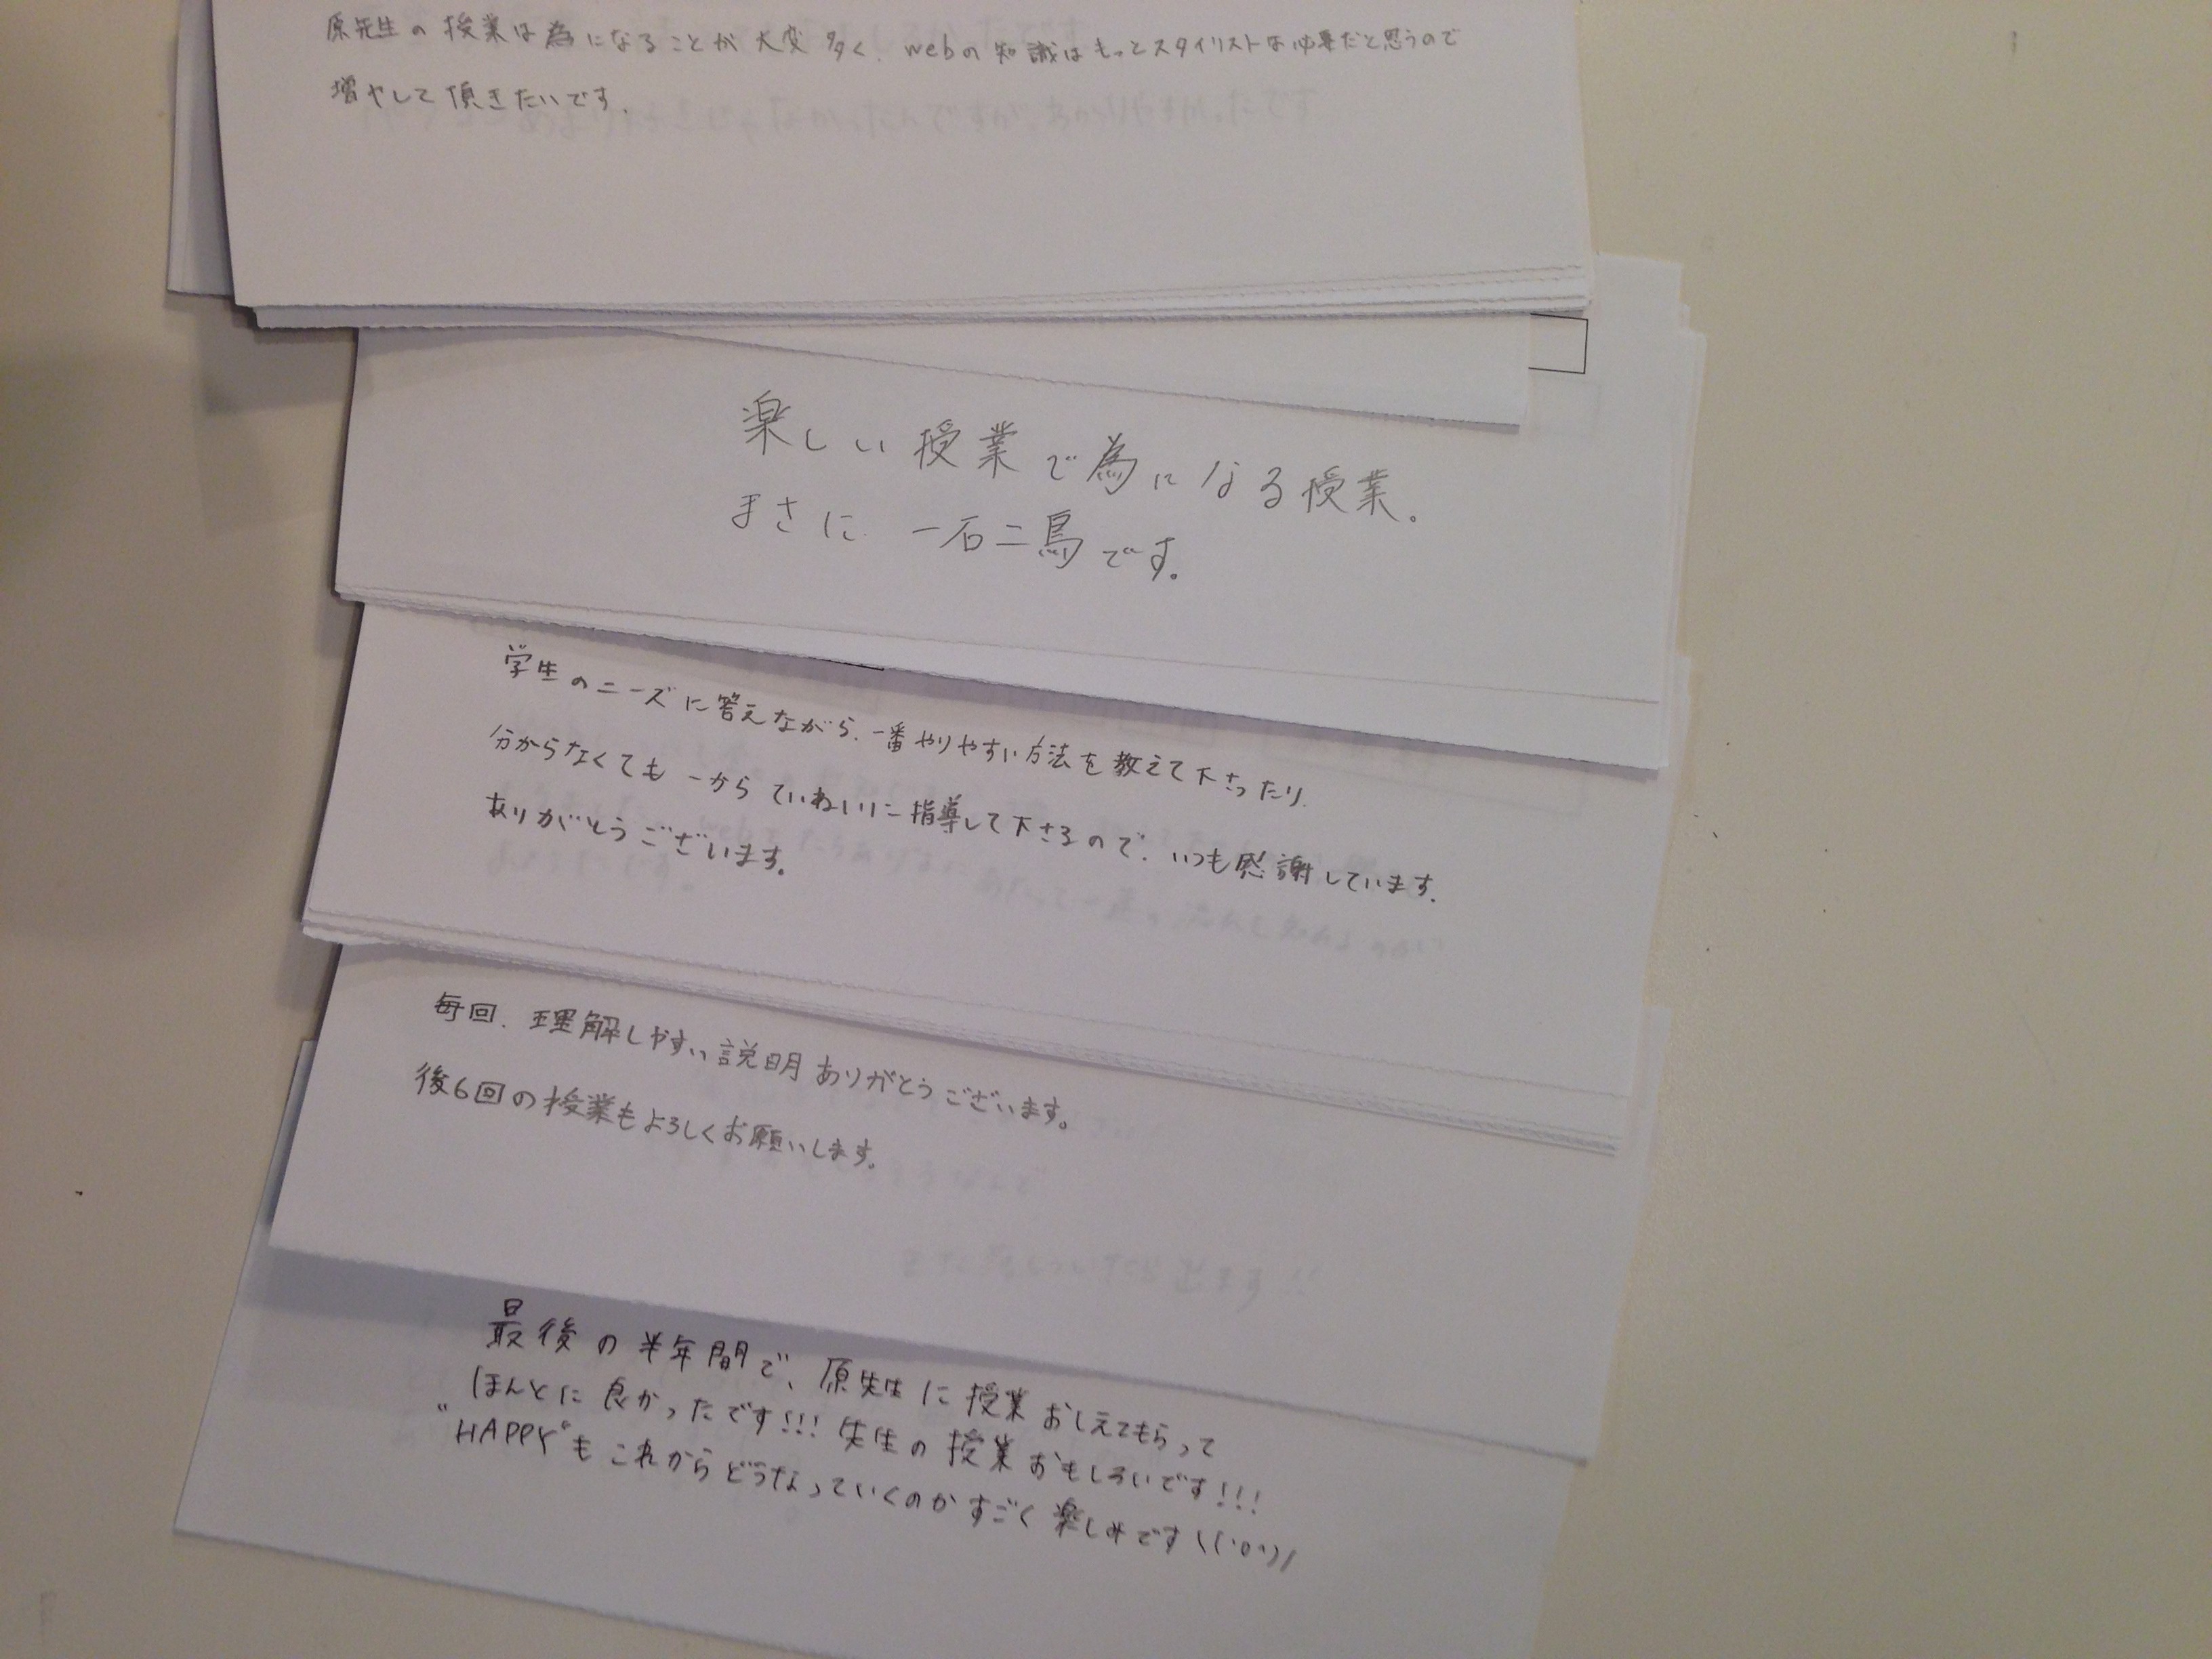 原先生の授業は為になることが大変多く、webの知識はもっとスタイリストは必要だと思うので
増やして頂きたいです。
楽しい授業で為になる授業。
まさに 一石二鳥です。
学生のニーズに答えながら、一番やりやすい方法を教えて下さったり、
分からなくても一からていねいに指導して下さるので、いつも感謝しています。
ありがとうございます。
毎回、理解しやすい説明ありがとうございます。
後6回の授業もよろしくお願いします。
最後の半年間で、原先生に授業おしえてもらって
ほんとに良かったです!!! 先生の授業おもしろいです!!!
"HAPPY"もこれからどうなっていくのかすごく楽しみです\(('o'))/